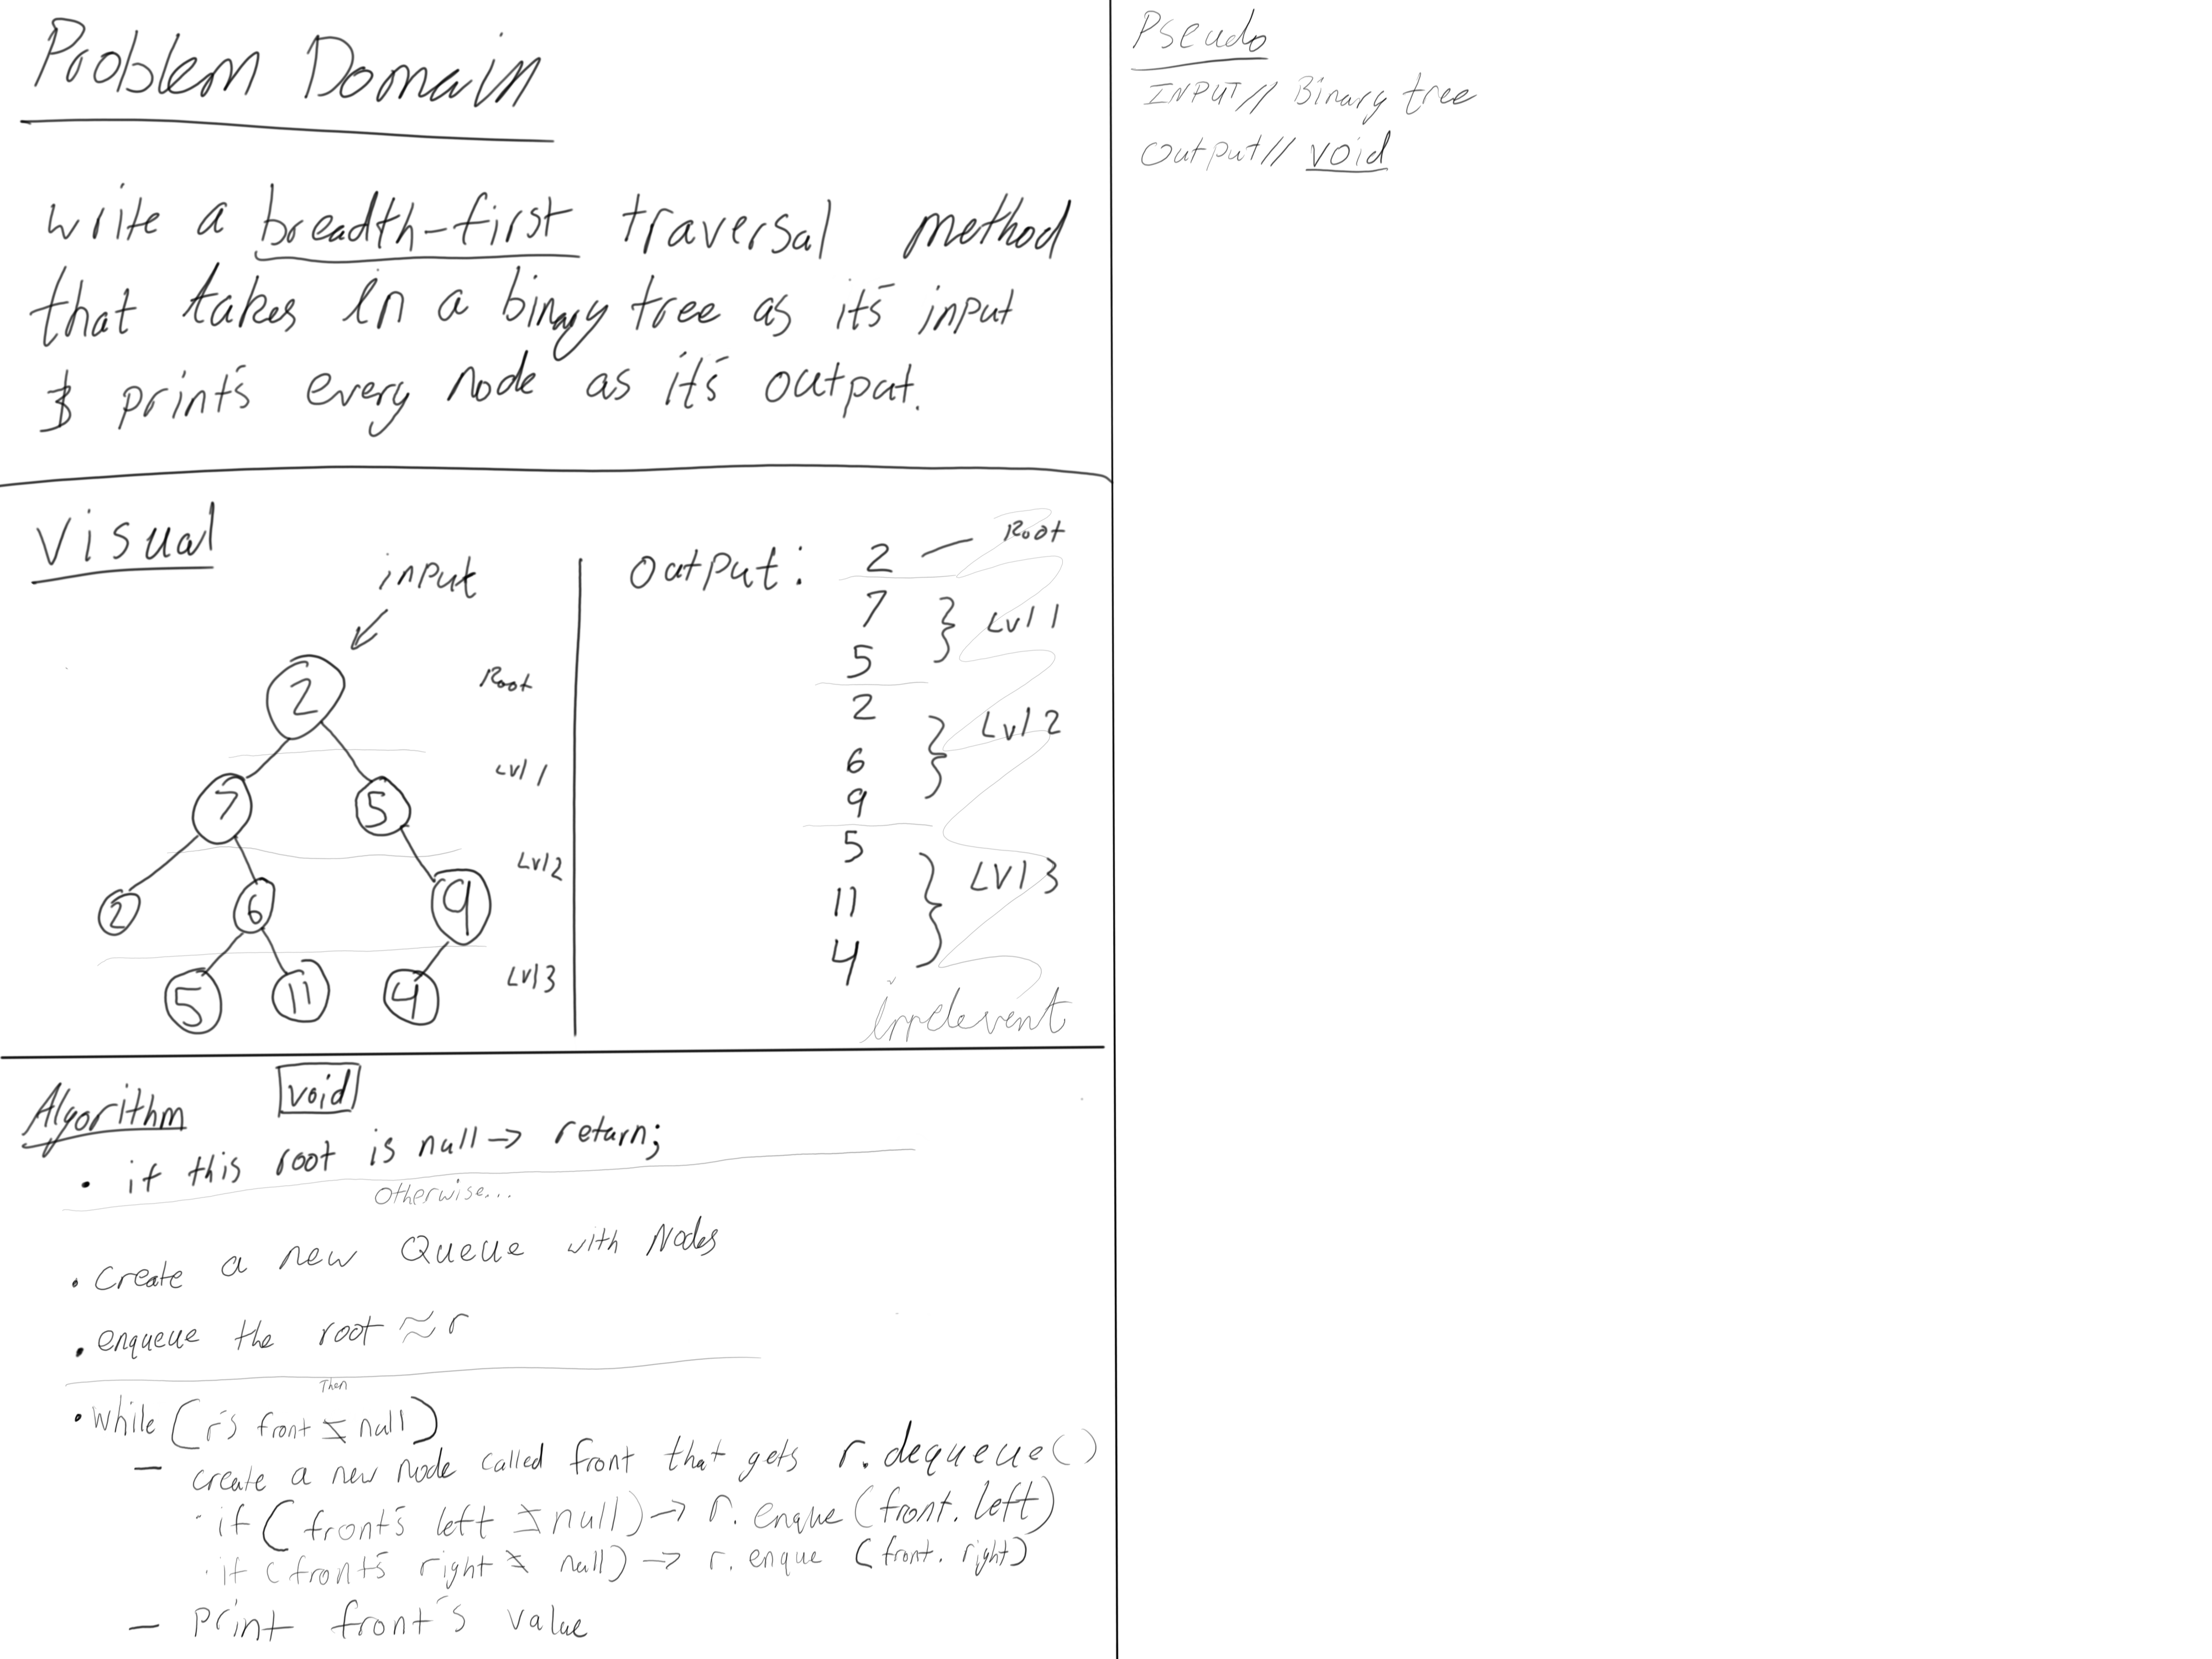 Problem Domain
write a breadth-first traversal method
that takes in a binary tree as it's input
& print's every node as it's output.
Visual
input
2
Root
7
5
Lvl 1
2
6
9
Lvl 2
5
11
4
Lvl 3
Output:
2
Root
7
5
Lvl 1
2
6
9
Lvl 2
5
11
4
Lvl 3
Irrelevent
Algorithm
void
• if this root is null → return;
Otherwise...
• Create a new Queue with Nodes
• enqueue the root ≈ r
Then
• while (r's front ≠ null)
— create a new node called front that gets r.dequeue()
· if (front's left ≠ null) → r.enque (front.left)
· if (front's right ≠ null) → r.enque (front.right)
— Print front's value
Pseudo
INPUT// Binary tree
Output// void